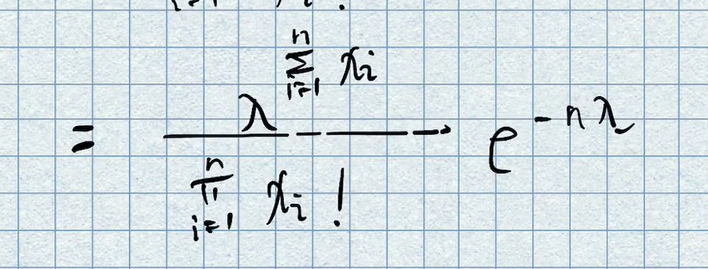 = \frac{\lambda^{\sum_{i=1}^{n} x_i}}{\prod_{i=1}^{n} x_i!} e^{-n\lambda}